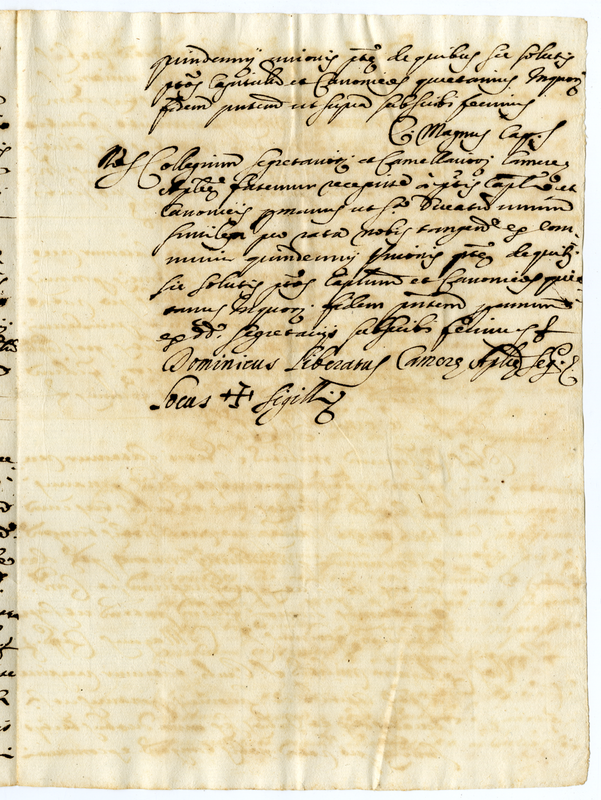 quindennij unionis pte de quibus sic solutis
ptos Capitulu et Canonicos quietamus Inquor
fidem pntem ut supra subscribi fecimus
C. Magnus Cap. s
Nos Collegium secretarior et Camellarior Camere
Aplice fatemur recepisse à ptis Caplo et
Canonicis pmanus ut sa Ducatu unum
similem pro rata nobis tangente ex com-
muni quindennij Unionis pte de quib.
sic solutis ptos Captum et Canonicos quie-
tamus Inquor. fidem pntem pmanum
ex dd. secretarijs subscribi fecimus
Dominicus Liberatus Camere Aplice Seg.
Locus ✠ Sigilli